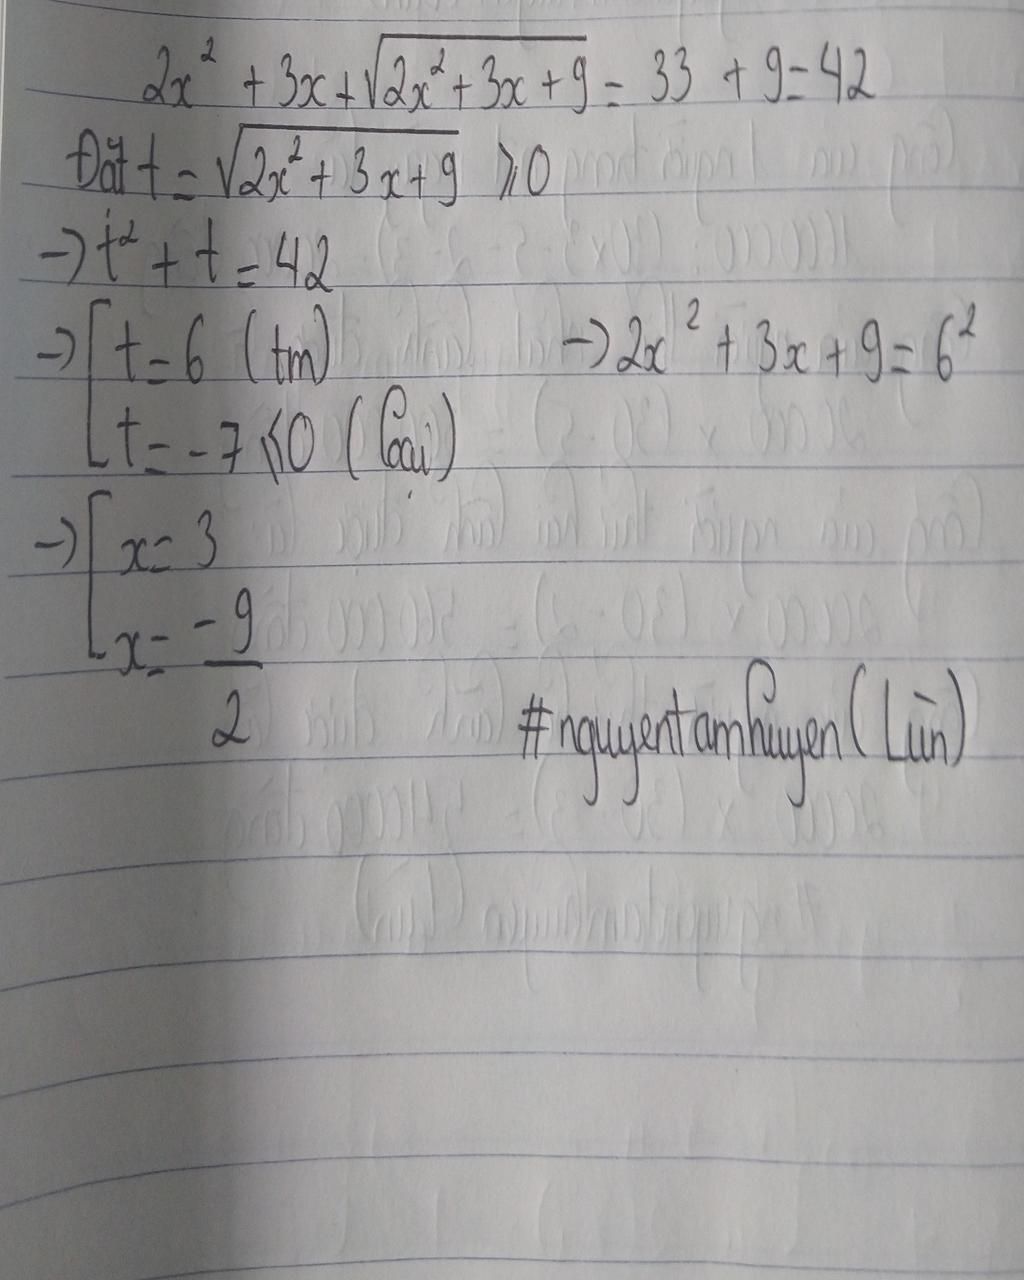 2x² + 3x + √(2x² + 3x + 9) = 33 + 9 = 42
Đặt t = √(2x² + 3x + 9) ⩾ 0
→ t² + t = 42
→ [ t = 6 (tm) → 2x² + 3x + 9 = 6²
[ t = -7 ⩽ 0 (loại)
→ [ x = 3
[ x = -9/2
#nguyentamhuyen (Lùn)